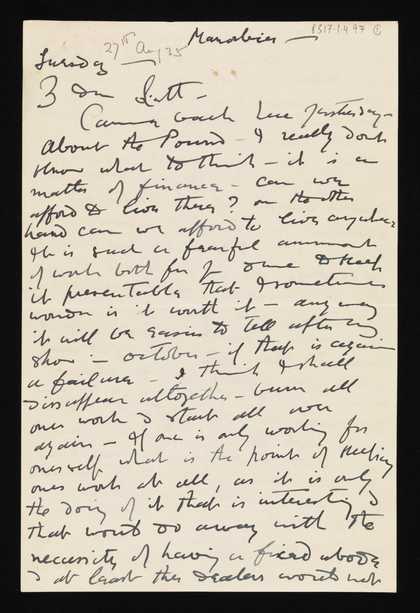 8317.1.4.97 1
27th Aug 35 Manorbier —
Tuesday
My Dear Sutt —
Came back here yesterday —
About the Pound — I really don't
know what to think — it is a
matter of finance — can we
afford to live there? on the other
hand can we afford to live anywhere
It is such a fearful amount
of work both for J & me to keep
it presentable that I sometimes
wonder is it worth it — any way
it will be easier to tell after my
show — october — if that is again
a failure — I think I shall
dissappear altogether — burn all
ones work & start all over
again — If one is only working for
oneself what is the point of keeping
ones work at all, as it is only
the doing of it that is interesting &
that would do away with the
necessity of having a fixed abode
& at least the dealers would not